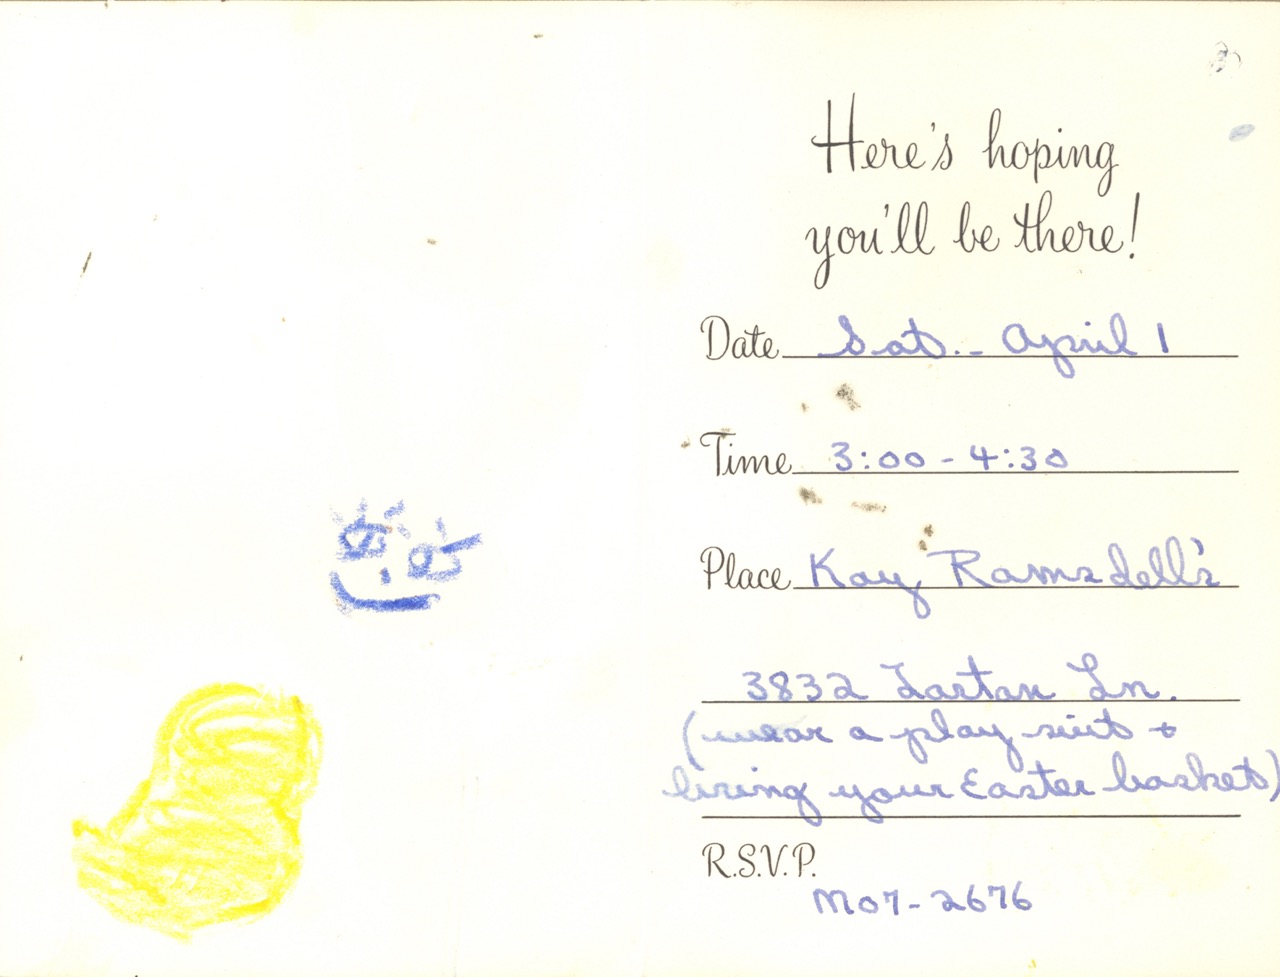 Here's hoping
you'll be there!
Date Sat.- April 1
Time 3:00 - 4:30
Place Kay Ramsdell's
3832 Tartan Ln.
(wear a play suit +
bring your Easter basket)
R.S.V.P.
MO7-2676